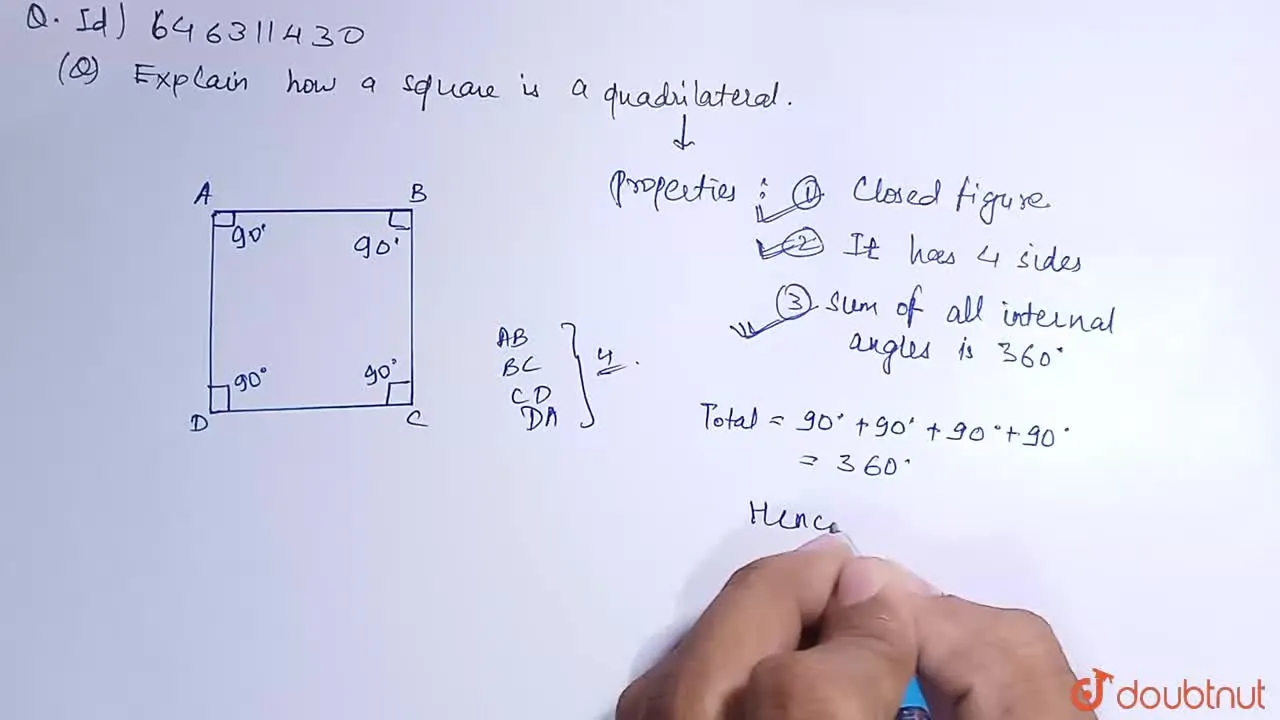 Q. Id) 646311430
(Q) Explain how a square is a quadrilateral.
Properties : ① Closed figure
② It has 4 sides
③ Sum of all internal
angles is 360°
A B
90° 90°
90° 90°
D C
AB
BC
CD
DA
4.
Total = 90° + 90° + 90° + 90°
= 360°
Henc
doubtnut